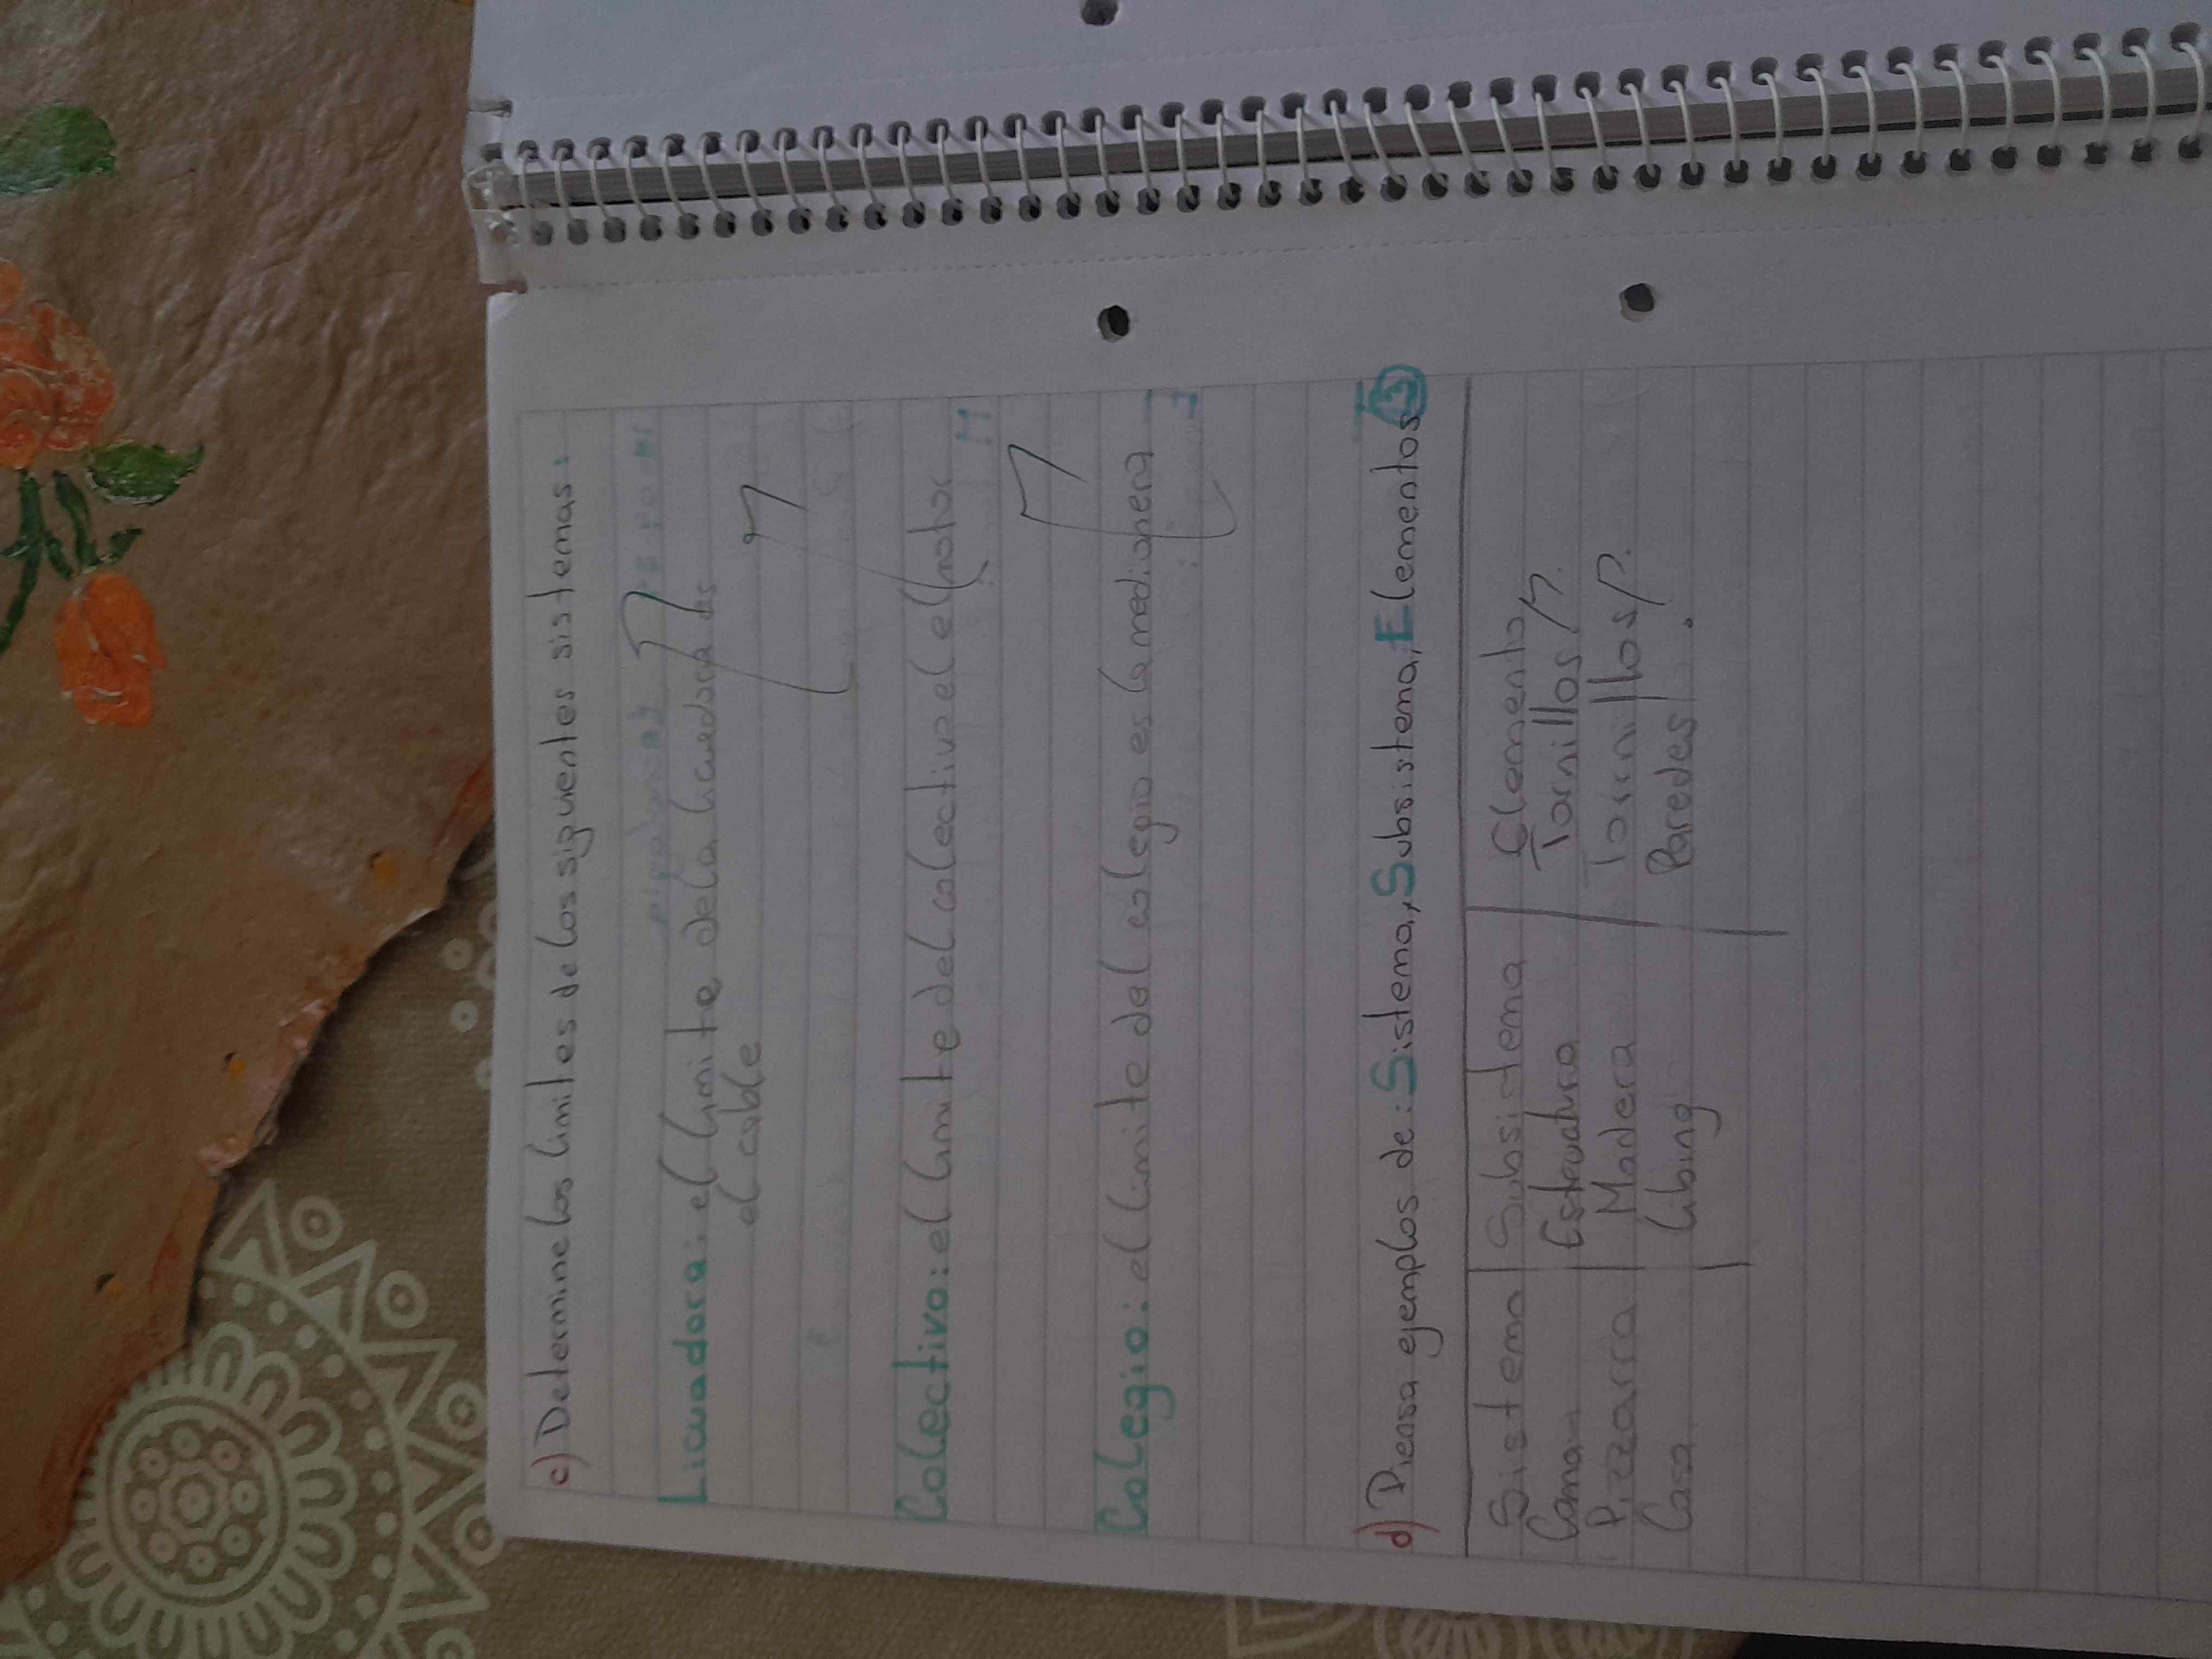 c) Determine los limites de los siguientes sistemas:
Licuadora: el limite de la licuadora es
el cable
Colectivo: el limite del colectivo el el motor
Colegio: el limite del colegio es la medionera
d) Piensa ejemplos de: Sistema, Subsistema, Elementos 3
Sistema Subsistema Elemento
Cama Estructura Tornillos
Pizzarra Madera Tornillos
Casa Libing Paredes